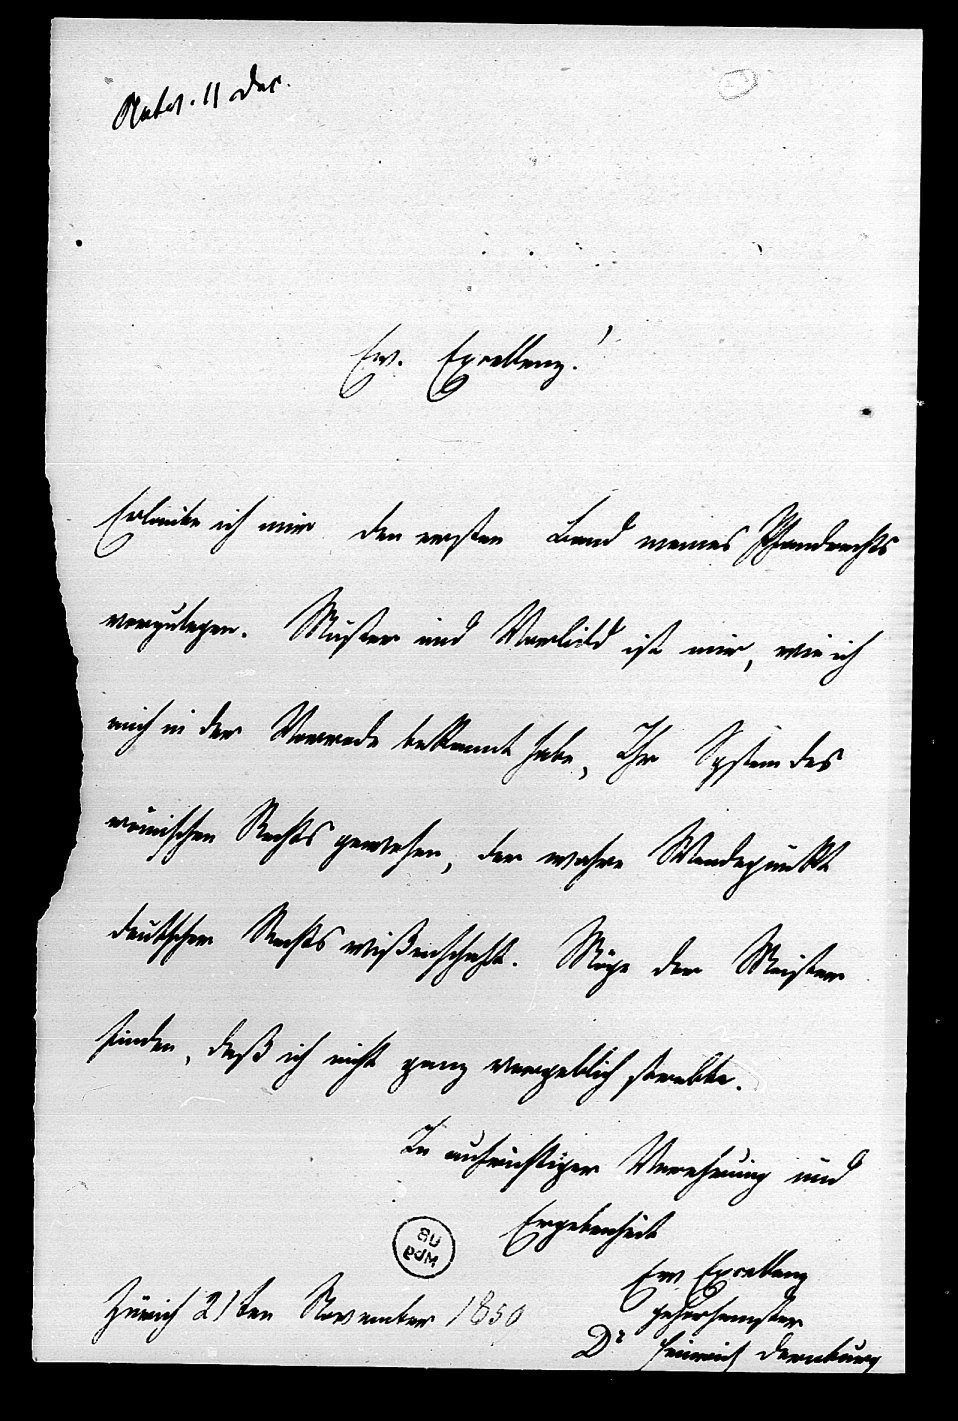 Antw. 11 Dec.
Ew. Excellenz!
Erlaube ich mir den ersten Band meines Pfandrechts
vorzulegen. Muster und Vorbild ist mir, wie ich
mich in der Vorrede bekannt habe, Ihr System des
römischen Rechts gewesen, der wahre Wendepunkt
deutscher Rechtswißenschaft. Möge der Meister
finden, daß ich nicht ganz vergeblich strebte.
In aufrichtiger Verehrung und
Ergebenheit
Ew Excellenz
gehorsamster
Dr Heinrich Dernburg
Zürich 21ten November 1859